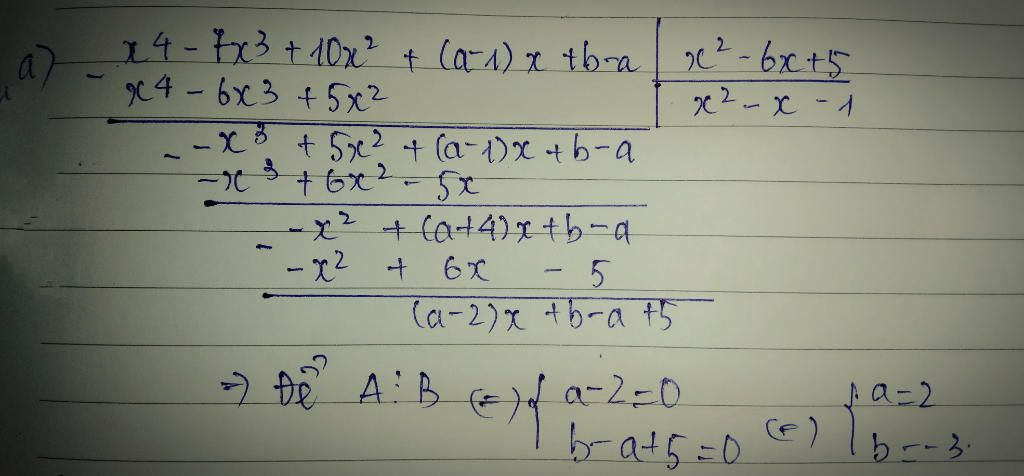 a) - x4 - 7x3 + 10x² + (a-1)x + b-a | x² - 6x + 5
x4 - 6x3 + 5x² | x² - x - 1
- -x³ + 5x² + (a-1)x + b-a
-x³ + 6x² - 5x
- -x² + (a+4)x + b-a
-x² + 6x - 5
(a-2)x + b-a+5
=> Để A ⋮ B (=) { a-2=0 (=) { a=2
b-a+5=0 b=-3.